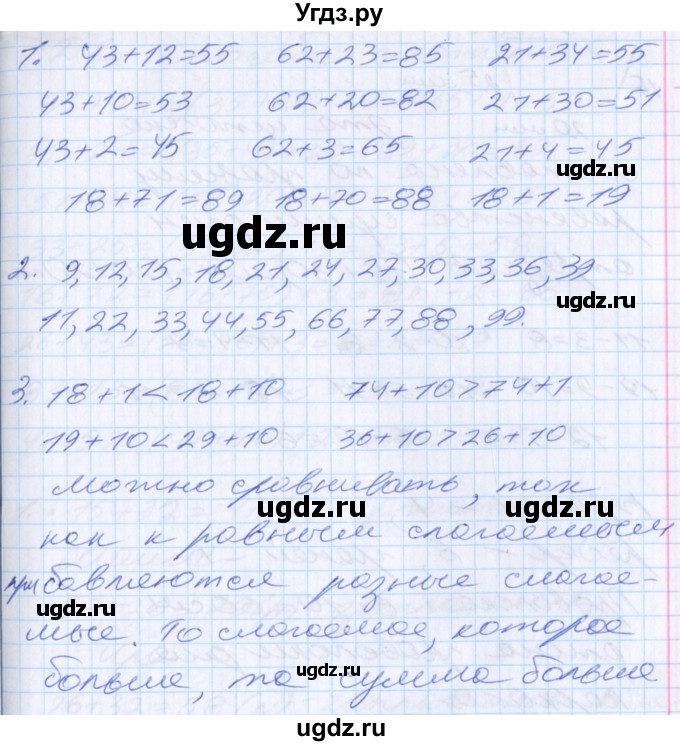 Угдз.ру
1. 43+12=55 62+23=85 21+34=55
43+10=53 62+20=82 21+30=51
43+2=45 62+3=65 21+4=45
угдз.ру
18+71=89 18+70=88 18+1=19
ugdz.ru
ugdz.ru
2. 9, 12, 15, 18, 21, 24, 27, 30, 33, 36, 39
ugdz.ru
11, 22, 33, 44, 55, 66, 77, 88, 99.
3. 18+1<18+10 74+10>74+1
19+10<29+10 36+10>26+10
можно сравнивать, так
ugdz.ru
ugdz.ru
как к равным слагаемым
прибавляются разные слагае-
ugdz.ru
мые. То слагаемое, которое
ugdz.ru
ugdz.ru
больше, та сумма больше
ugdz.ru